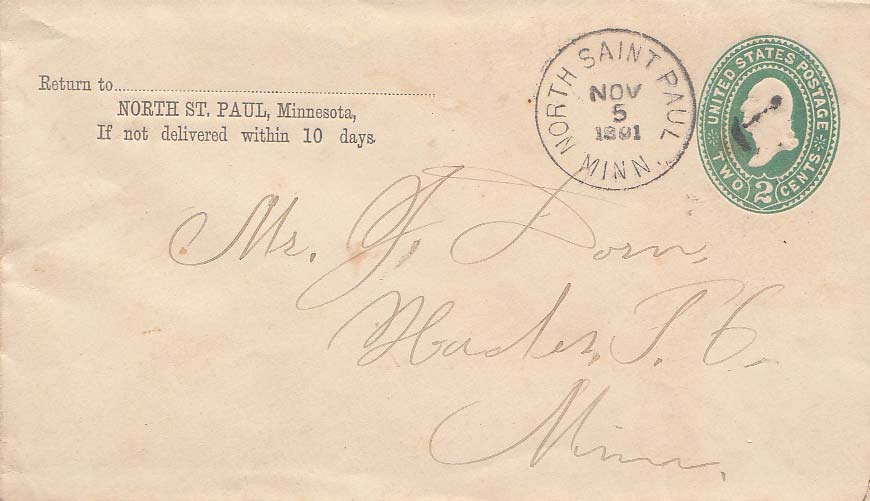 Return to
NORTH ST. PAUL, Minnesota,
If not delivered within 10 days.
NORTH SAINT PAUL
NOV
5
1891
MINN.
UNITED STATES POSTAGE
TWO 2 CENTS
Mr. F. Dorn,
Minn.